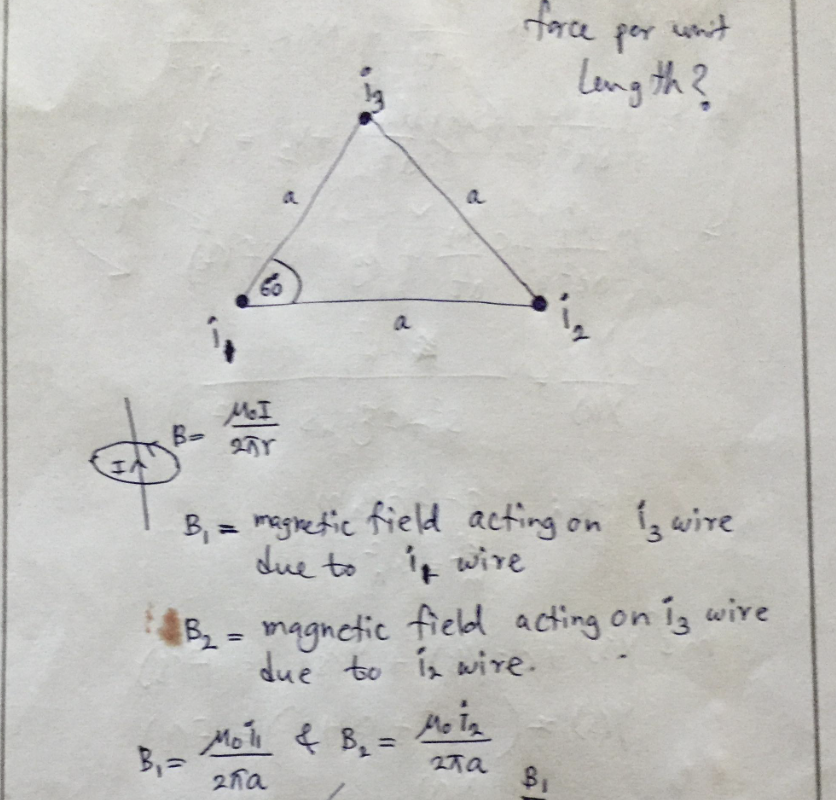 force per unit
length?
i₃
a
a
60
i₁
a
i₂
I
B= μ₀I/2πr
B₁ = magnetic field acting on i₃ wire
due to i₁ wire
B₂ = magnetic field acting on i₃ wire
due to i₂ wire.
B₁= μ₀i₁/2πa & B₂= μ₀i₂/2πa
B₁